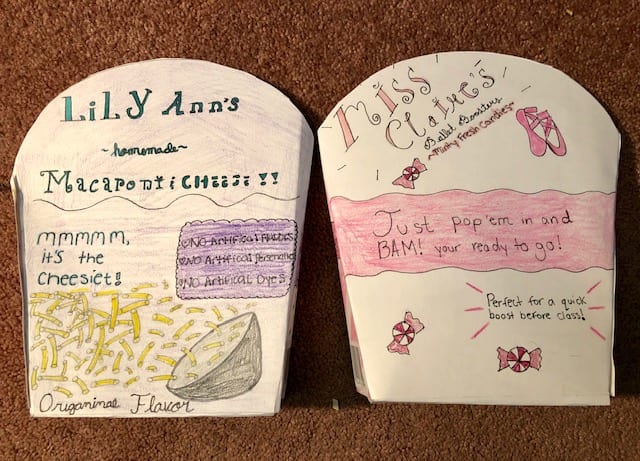 LiLY Ann's
~homemade~
Macaroni i CHEESE !!
mmmmm,
it's the
Cheesiet!
NO Artificial Flavors
NO Artificial
NO Artificial Dye's
Origaninal Flavor
Miss
Claire's
Ballet Boosters
~Minty Fresh Candies~
Just pop'em in and
BAM! your ready to go!
Perfect for a quick
boost before class!